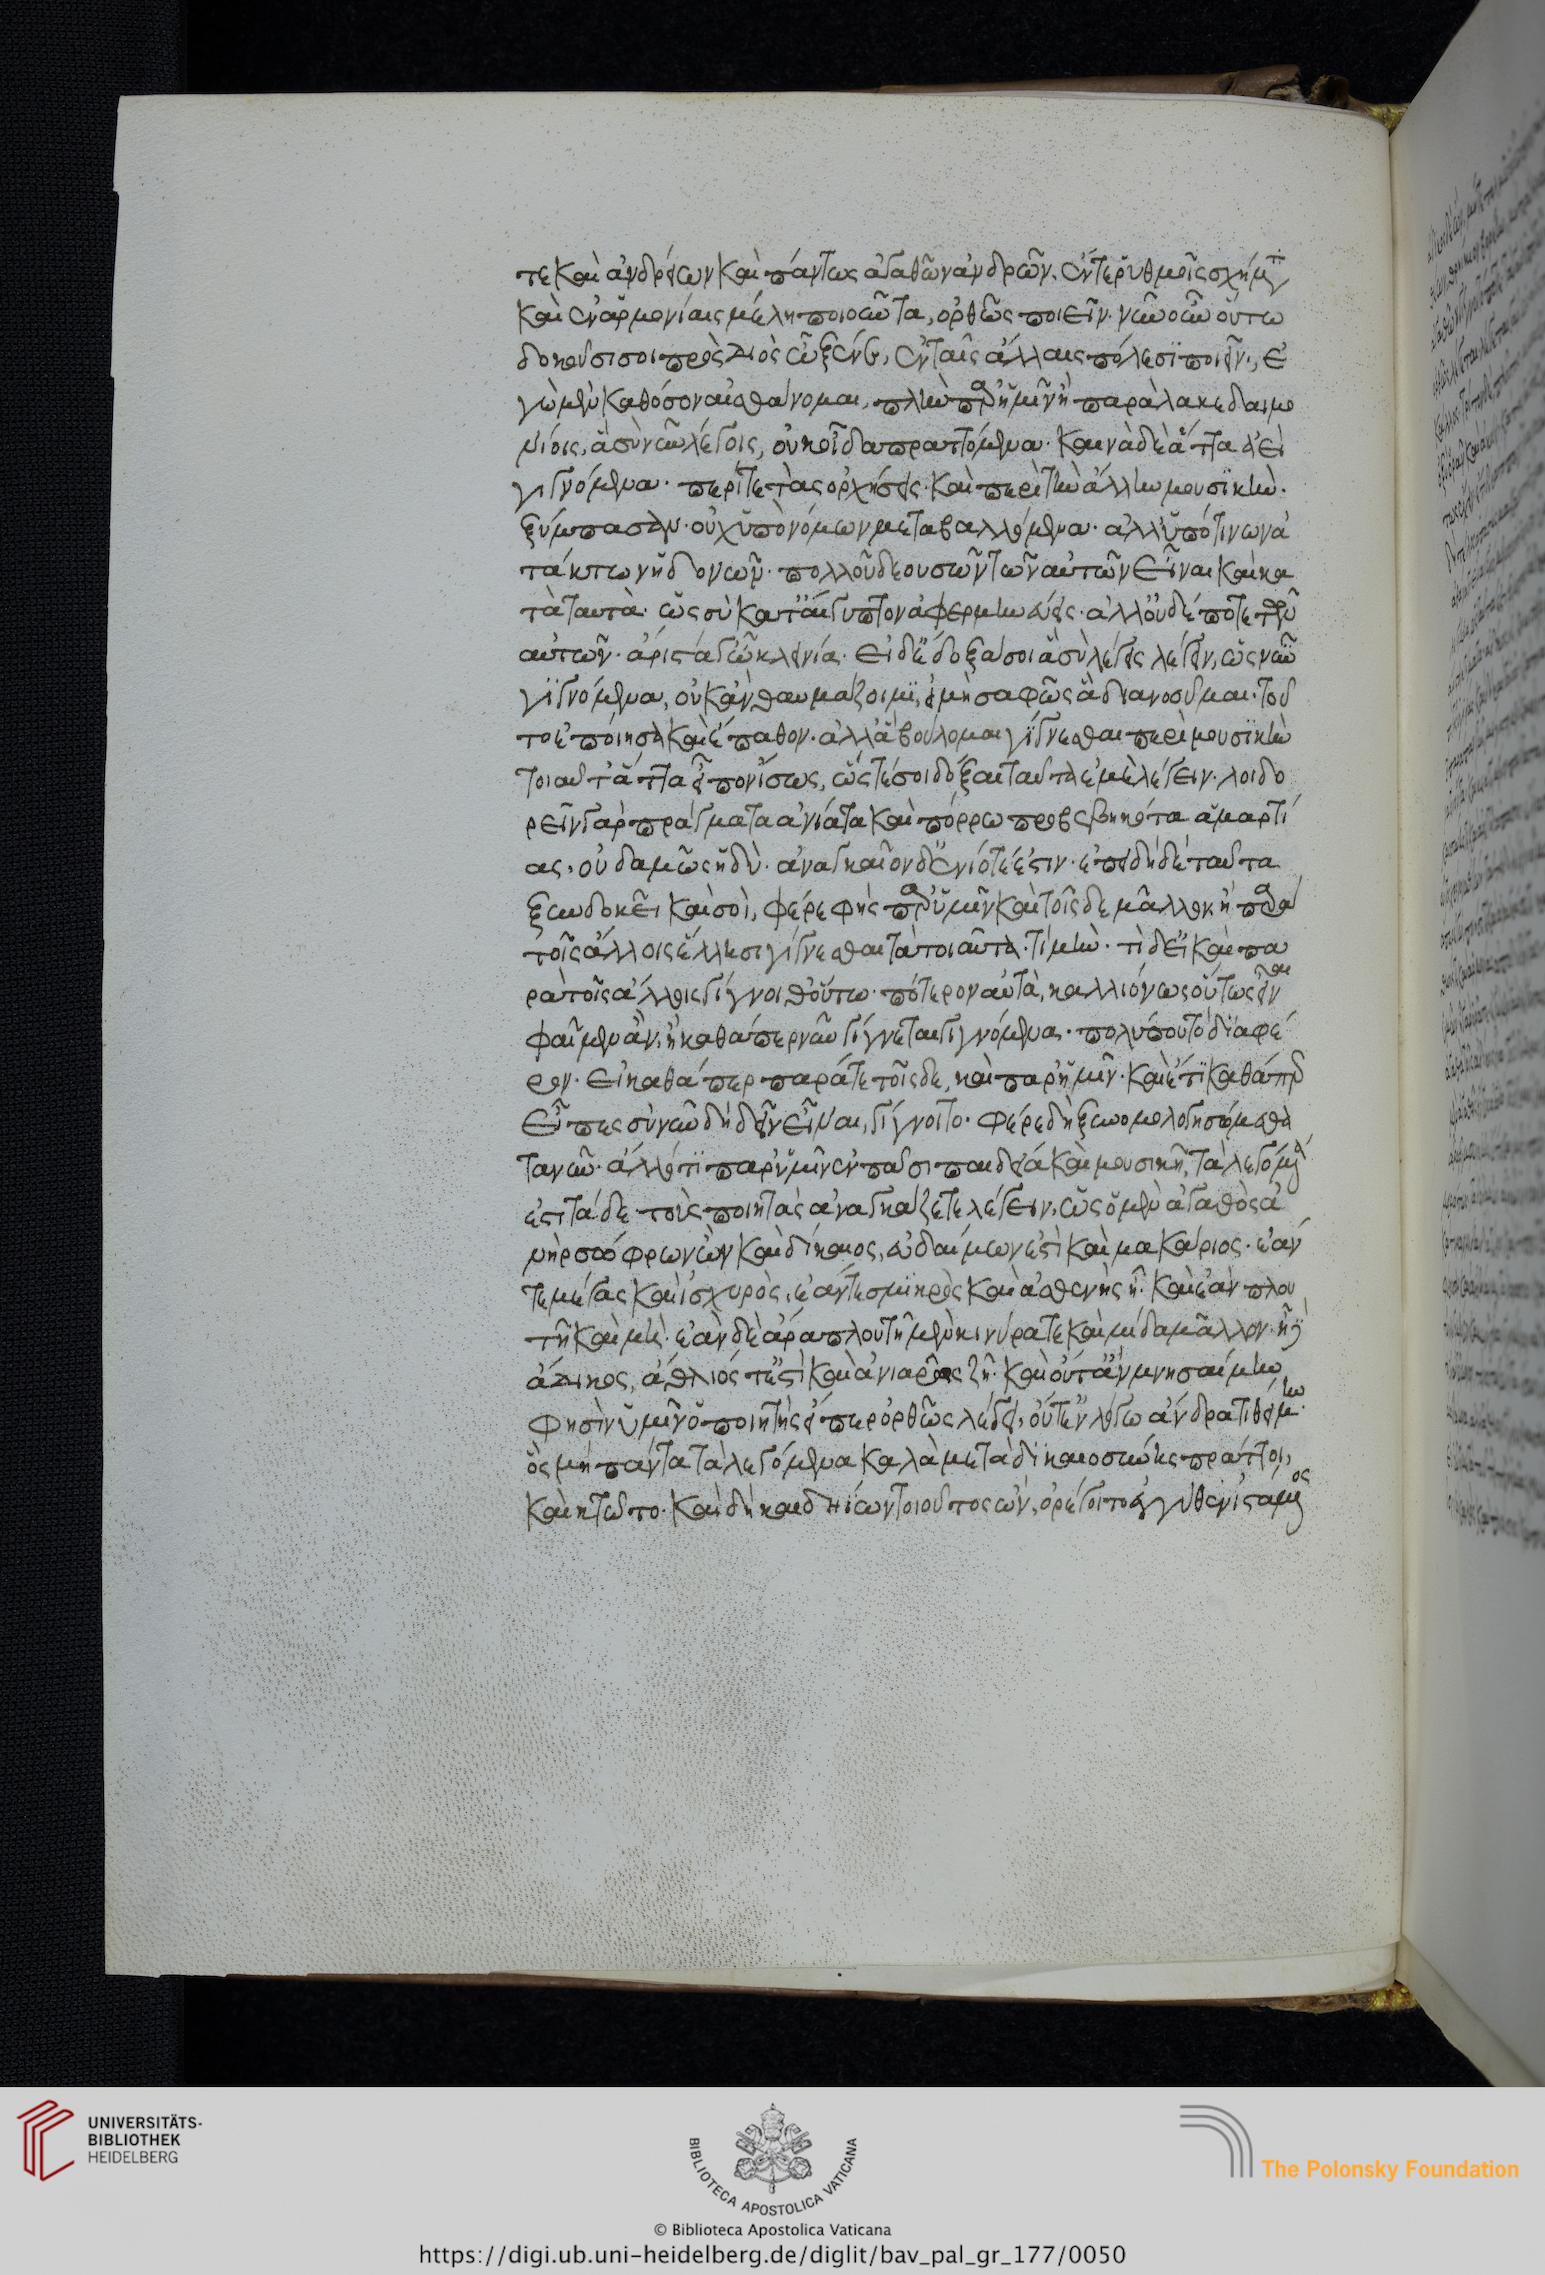 τε καὶ ἀνδρείων καὶ πάντως ἀγαθῶν ἀνδρῶν. ἔν τε ῥυθμοῖς σχήματι
καὶ ἐν ἁρμονίαις μέλη ποιοῦντα, ὀρθῶς ποιεῖν. νῦν οὖν οὕτω
δοκοῦσί σοι πρὸς Διὸς ὦ ξένε, ἐν ταῖς ἄλλαις πόλεσι ποιεῖν., ἐ
γὼ μὲν καθόσον αἰσθάνομαι, πλὴν παρ' ἡμῖν ἢ παρὰ λακεδαιμο
νίοις, ἃ σὺ νῦν λέγεις, οὐκ οἶδα πραττόμενα. καινὰ δὲ ἄττα ἀεὶ
γιγνόμενα. περί τε τὰς ὀρχήσεις. καὶ περὶ τὴν ἄλλην μουσικὴν.
ξύμπασαν. οὐχ ὑπὸ νόμων μεταβαλλόμενα. ἀλλ' ὑπό τινων ἀ
τάκτων ἡδονῶν. πολλοῦ δεουσῶν τῶν αὐτῶν εἶναι καὶ κα
τὰ ταυτὰ. ὡς σὺ κατ' αἴγυπτον ἀφερμηνεύεις. ἀλλ' οὐδέποτε τῶν
αὐτῶν. ἄριστά γ' ὦ κλεινία. εἰ δ' ἔδοξά σοι ἃ σὺ λέγεις λέγειν, ὡς νῦν
γιγνόμενα, οὐκ ἂν θαυμάζοιμι, εἰ μὴ σαφῶς ἃ διανοοῦμαι. τοῦ
το ἐποίησα καὶ ἔπαθον. ἀλλ' ἃ βούλομαι γίγνεσθαι περὶ μουσικὴν
τοιαῦτ' ἄττα εἶπον ἴσως, ὥστε σοι δόξαι ταῦτα ἐμὲ λέγειν. λοιδο
ρεῖν γὰρ πράγματα ἀνίατα καὶ πόρρω προβεβηκότα ἁμαρτί
ας, οὐδαμῶς ἡδὺ. ἀναγκαῖον δ' ἐνίοτέ ἐστιν. ἐπειδὴ δὲ ταῦτα
ξυνδοκεῖ καὶ σοὶ, φέρε φὴς παρ' ὑμῖν καὶ τοῖσδε μᾶλλον ἢ παρὰ
τοῖς ἄλλοις ἕλλησι γίγνεσθαι τὰ τοιαῦτα. τί μὴν. τὶ δ' εἰ καὶ πα
ρὰ τοῖς ἄλλοις γίγνοιθ' οὕτω. πότερον αὐτὰ, καλλιόνως οὕτως εἶναι
φαῖμεν ἂν, ἢ καθάπερ νῦν γίγνεται γιγνόμενα. πολύ που τὸ διαφέ
ρον. εἰ καθάπερ παρά τε τοῖσδε, καὶ παρ' ἡμῖν. καὶ ἔτι καθάπερ
εἶπες σὺ νῦν δὴ δεῖν εἶναι, γίγνοιτο. φέρε δὴ ξυνομολογησώμεθα
τανῦν. ἄλλό τι παρ' ὑμῖν ἐν πάσι παιδείᾳ καὶ μουσικῇ, τὰ λεγόμενά
ἐστι τάδε. τοὺς ποιητὰς ἀναγκάζετε λέγειν, ὡς ὁ μὲν ἀγαθὸς ἀ
νὴρ σώφρων ὢν καὶ δίκαιος, εὐδαίμων ἐστὶ καὶ μακάριος. ἐάν
τε μέγας καὶ ἰσχυρὸς, ἐάν τε σμικρὸς καὶ ἀσθενὴς ᾖ. καὶ ἐὰν πλου
τῇ καὶ μὴ. ἐὰν δὲ ἄρα πλουτῇ μὲν κινύρα τε καὶ μίδα μᾶλλον. ᾖ δὲ
ἄδικος, ἄθλιός τ' ἐστὶ καὶ ἀνιαρῶς ζῇ. καὶ οὔτ' ἂν μνησαίμην
φησὶν ὑμῖν ὁ ποιητὴς εἴπερ ὀρθῶς λέγει, οὔτ' ἐν λόγω ἄνδρα τιθείμην.
ὃς μὴ πάντα τὰ λεγόμενα καλὰ μετὰ δικαιοσύνης πράττοι,
καὶ κτῶτο. καὶ δὴ καὶ δηΐων τοιοῦτος ὢν, ὀρέγοιτο ἐγγύθεν ἱστάμενος
UNIVERSITÄTS-
BIBLIOTHEK
HEIDELBERG
BIBLIOTECA APOSTOLICA VATICANA
The Polonsky Foundation
© Biblioteca Apostolica Vaticana
https://digi.ub.uni-heidelberg.de/diglit/bav_pal_gr_177/0050